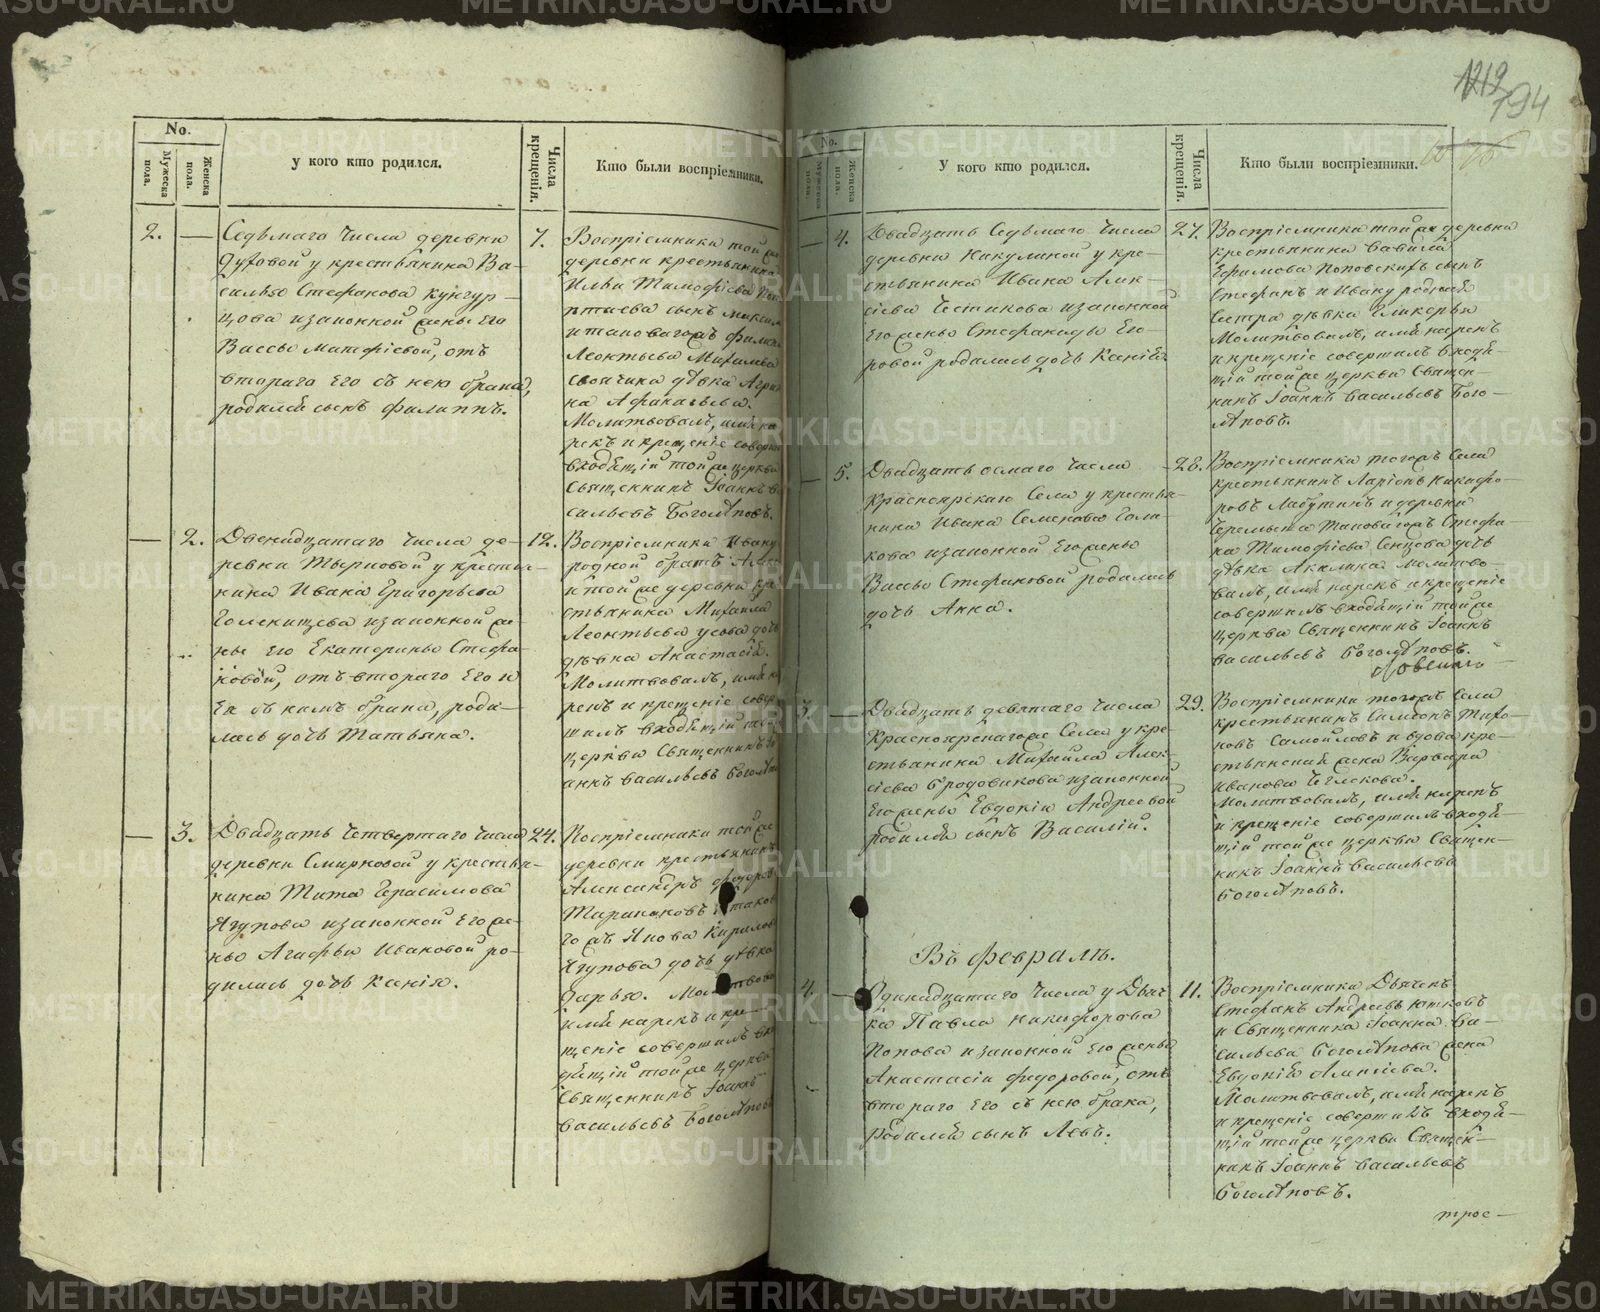 No.
Мужеска пола.
Женска пола.
у кого кто родился.
Числа крещенія.
Кто были воспріемники.
2. — Седьмаго числа деревни
Духовой у крестьянина Ва-
силья Стефанова Кунгур-
цова и законной жены его
Вассы Матфіевой, отъ
втораго его съ нею брака,
родился сынъ Филиппъ.
7. Воспріемники той же
деревни крестьянина
Ильи Тимофіева
сынъ Максим
и таковагожъ Филип
Леонтьева Михаила
своячина дѣвка Агрип
на Афанасьева.
Молитвовалъ, имя на
рекъ и крещеніе соверши
входящій той же церкви
Священникъ Іоаннъ Ва
сильевъ Боголѣповъ.
— 2. Двенадцатаго числа де-
ревни Тыриовой у крестья-
нина Ивана Григорьева
Голенищева и законной же-
ны его Екатерины Стефа-
новой, отъ втораго его и
ея съ нимъ брака, роди-
лась дочь Татьяна.
12. Воспріемники Ивану
родной братъ
и той же деревни кре
стьянина Михаила
Леонтьева Усова дочь
дѣвка Анастасія.
Молитвовалъ, имя на
рекъ и крещеніе совер
шилъ входящій той же
церкви Священникъ Іо
аннъ Васильевъ Боголѣп
— 3. Двадцать четвертаго числа
деревни Смирновой у крестья-
нина Тита Герасимова
Ягупова и законной его же-
ны Агафьи Ивановой ро-
дилась дочь Ксенія.
24. Воспріемники той же
деревни крестьянинъ
Александръ Федоров
и таков
гожъ Якова Кирилов
Ягупова дочь дѣвка
Дарья. Молитвова
имя нарекъ и кре-
щеніе совершилъ вхо
дящій той же церкви
Священникъ Іоаннъ
Васильевъ Боголѣпов
1219
194
No.
Мужеска пола.
Женска пола.
у кого кто родился.
Числа крещенія.
Кто были воспріемники.
— 4. Двадцать седьмаго числа
деревни Никулиной у кре-
стьянина Ивана Алек-
сіева Чеснокова и законной
его жены Стефаниды Его-
ровой родилась дочь Ксенія.
27. Воспріемники той же деревни
крестьянина Вавилы
Ефимова Поповскихъ сынъ
Стефанъ и Ивану родная
сестра дѣвка Гликерья
Молитвовалъ, имя нарекъ
и крещеніе совершилъ входя-
щій той же церкви Священ-
никъ Іоаннъ Васильевъ Бого-
лѣповъ.
— 5. Двадцать осмаго числа
Красноярскаго Села у крестья-
нина Ивана Семенова Голи-
кова и законной его жены
Вассы Стефановой родилась
дочь Анна.
28. Воспріемники тогожъ Села
крестьянинъ Ларіонъ Никифо-
ровъ Лабутинъ и деревни
таковагожъ Стефа-
на Тимофіева Сенцова дочь
дѣвка Акилина. Молитво-
валъ, имя нарекъ и крещеніе
совершилъ входящій той же
церкви Священникъ Іоаннъ
Васильевъ Боголѣповъ.
3. — Двадцать девятаго числа
Красноярскагоже Села у кре-
стьянина Михаила Алек-
сіева Бродовикова и законной
его жены Евдокіи Андреевой
родился сынъ Василій.
29. Воспріемники тогожъ Села
крестьянинъ Симеонъ Тихо-
новъ Самойловъ и вдова кре-
стьянская жена Варвара
Иванова Чеглокова.
Молитвовалъ, имя нарекъ
и крещеніе совершилъ входя-
щій той же церкви Священ-
никъ Іоаннъ Васильевъ
Боголѣповъ.
Въ Февралѣ.
4. — Одинадцатаго числа у Дьяч-
ка Павла Никифорова
Попова и законной его жены
Анастасіи Федоровой, отъ
втораго его съ нею брака,
родился сынъ Левъ.
11. Воспріемники Дьячекъ
Стефанъ Андреевъ
и Священника Іоанна Ва-
сильева Боголѣпова жена
Евдокія Алексіева.
Молитвовалъ, имя нарекъ
и крещеніе совершилъ входя-
щій той же церкви Священ-
никъ Іоаннъ Васильевъ
Боголѣповъ.
трос-
METRIKI.GASO-URAL.RU